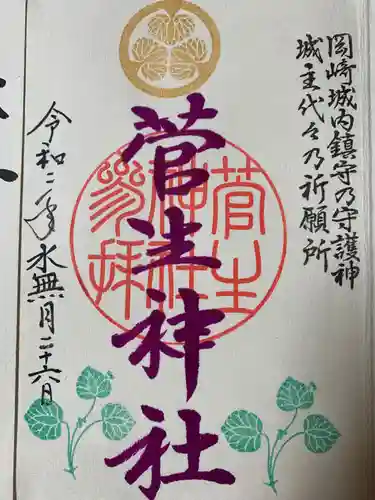 岡崎城内鎮守乃守護神
城主代々乃祈願所
菅生神社
菅生神社参拝
令和二年水無月二十六日